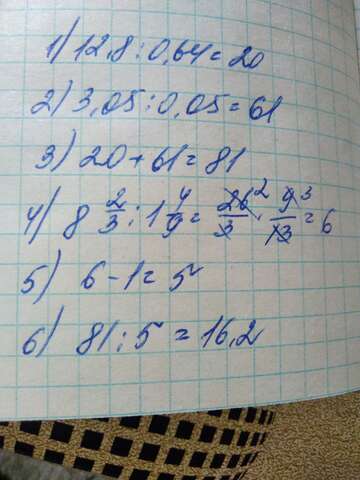 1) 12,8 : 0,64 = 20
2) 3,05 : 0,05 = 61
3) 20 + 61 = 81
4) 8 2/3 : 1 4/9 = 26²/3 · 9³/13 = 6
5) 6 - 1 = 5
6) 81 : 5 = 16,2